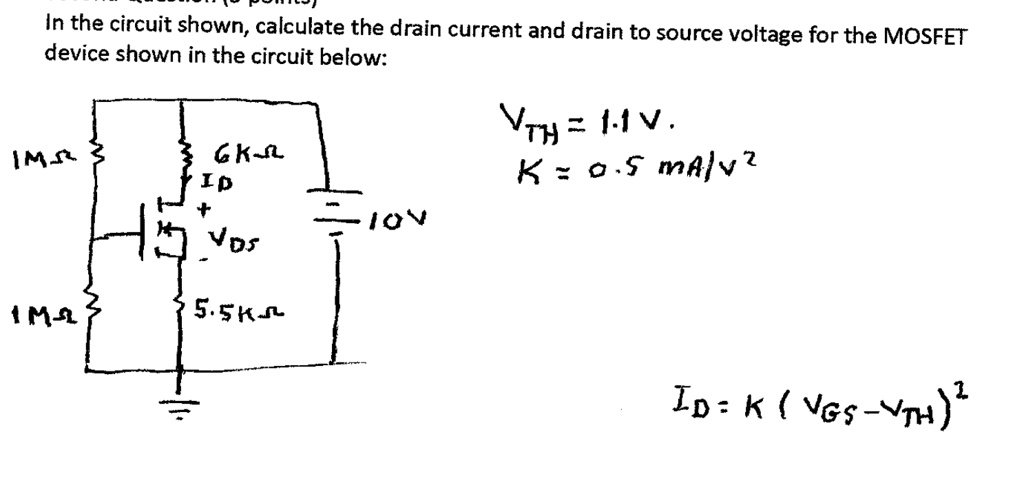 In the circuit shown, calculate the drain current and drain to source voltage for the MOSFET
device shown in the circuit below:
VTH = 1.1 V.
K = 0.5 mA/V²
1MΩ
6KΩ
ID
+
VDS
-
10V
1MΩ
5.5KΩ
ID = K ( VGS - VTH )²